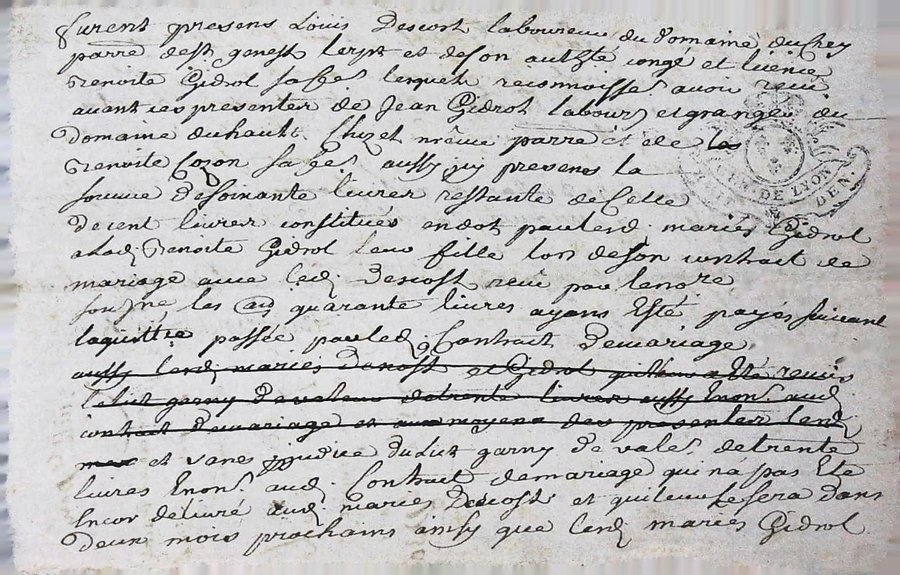 furent presens Louis Descost laboureur du domaine du Crey
parre de st genest lerpt et de son authté congé et licence
Benoite Gidrol sa fe lequels reconnoissent avoir receu
avant ces presentes de Jean Gidrol labour et granger du
domaine du haut Chizet même parre et de
Benoite Cozon sa fe aussy icy presens la
somme de soixante livres restante de celle
de cent livres constitués en dot par lesd. mariés Gidrol
a lad. Benoite Gidrol leur fille lors de son contrait de
mariage avec led. Descost receu par le nore
sousné, les quarante livres ayans esté payés suivant
la quittce passée par led. Contrait de mariage
aussy lesd. mariés Descost et Gidrol
le lit garny de valeur de trente livres aussy enoné aud.
contrait de mariage et au moyens des presentes lesd.
et sans judice du lit garny de vales de trente
livres enoné aud. Contrait de mariage qui na pas eté
encor delivré aud. mariés Descost et qui leur le sera dans
deux mois prochains ainsy que lesd. mariés Gidrol
GEN. DE LYON
DEN.